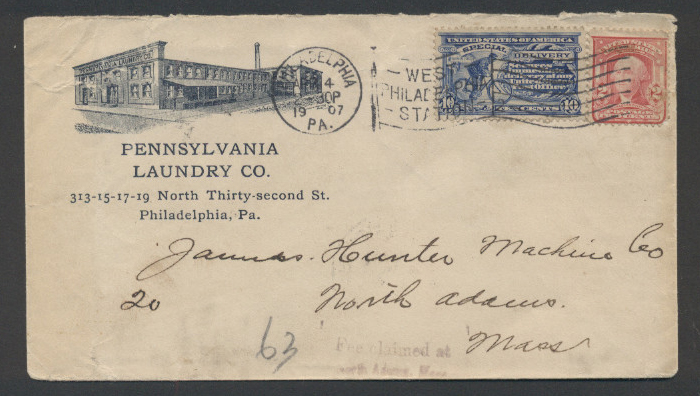 PENNSYLVANIA LAUNDRY CO.
PENNSYLVANIA
LAUNDRY CO.
313-15-17-19 North Thirty-second St.
Philadelphia, Pa.
PHILADELPHIA
4
30P
19 07
PA.
WEST
PHILADELPHIA
STATION
UNITED STATES OF AMERICA
SPECIAL DELIVERY
10 CENTS 10
2 2
James Hunter Machine Co
20 North Adams.
Mass
63
Fee claimed at
North Adams, Mass.